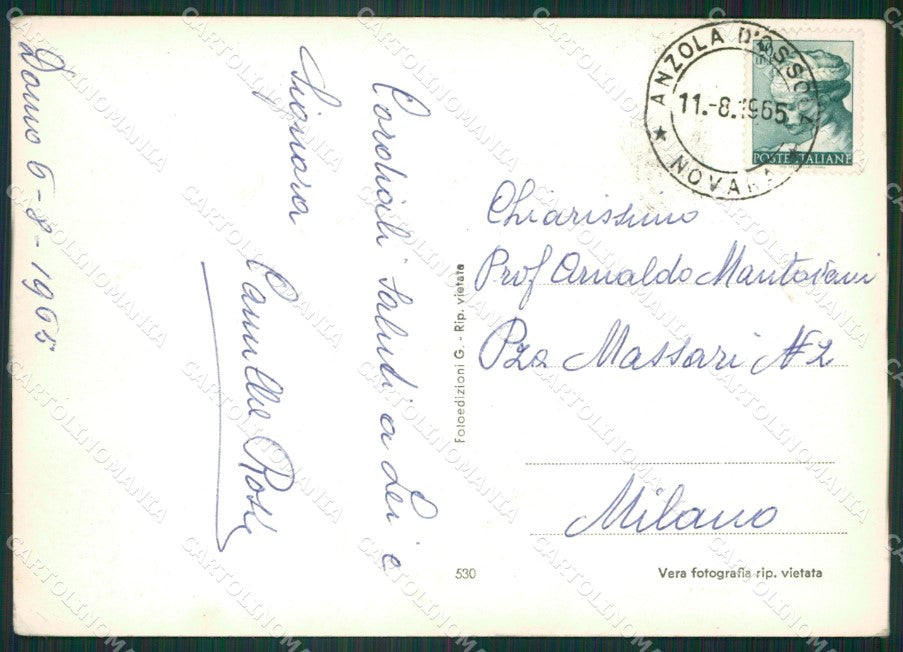 Domo 6-8-1965
Cordiali saluti a Lei e
Signora
Camillo Rossi
ANZOLA D'OSSOLA
11.-8.1965
NOVARA
POSTE ITALIANE
Chiarissimo
Prof Arnaldo Mantovani
Pza Massari N 2
Milano
Fotoedizioni G. - Rip. vietata
530
Vera fotografia rip. vietata
CARTOLINOMANIA